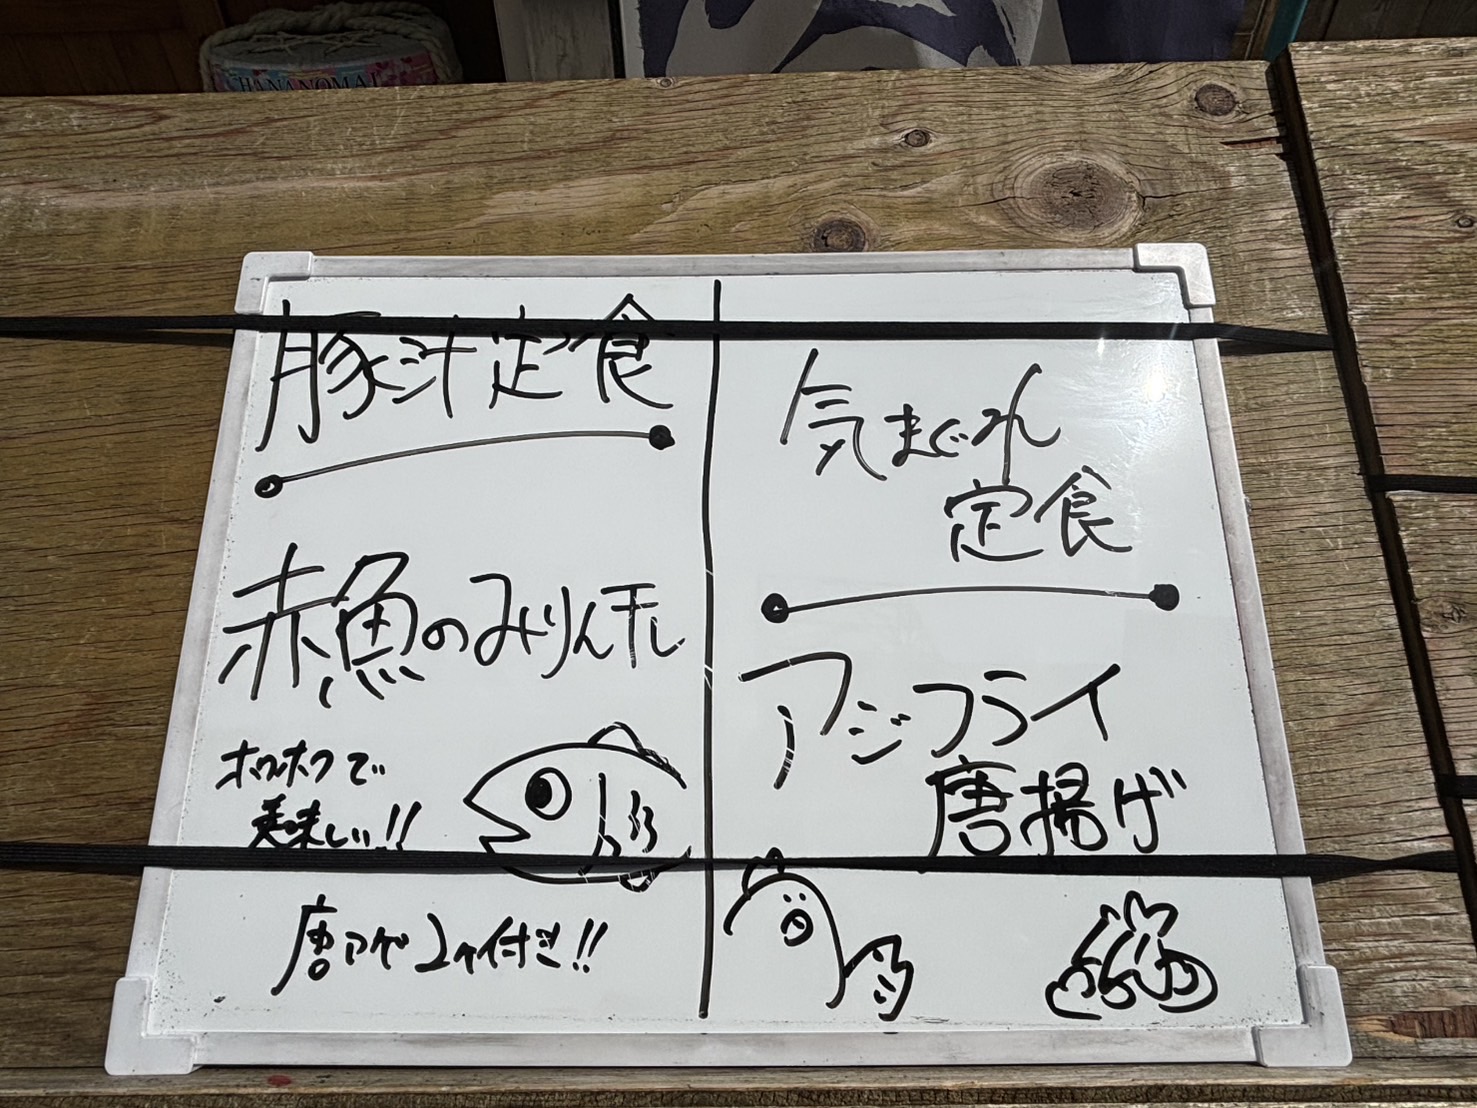 HANANOMAI
豚汁定食
赤魚のみりん干し
ホクホクで
美味しい!!
唐アゲ2ヶ付き!!
気まぐれ
定食
アジフライ
唐揚げ